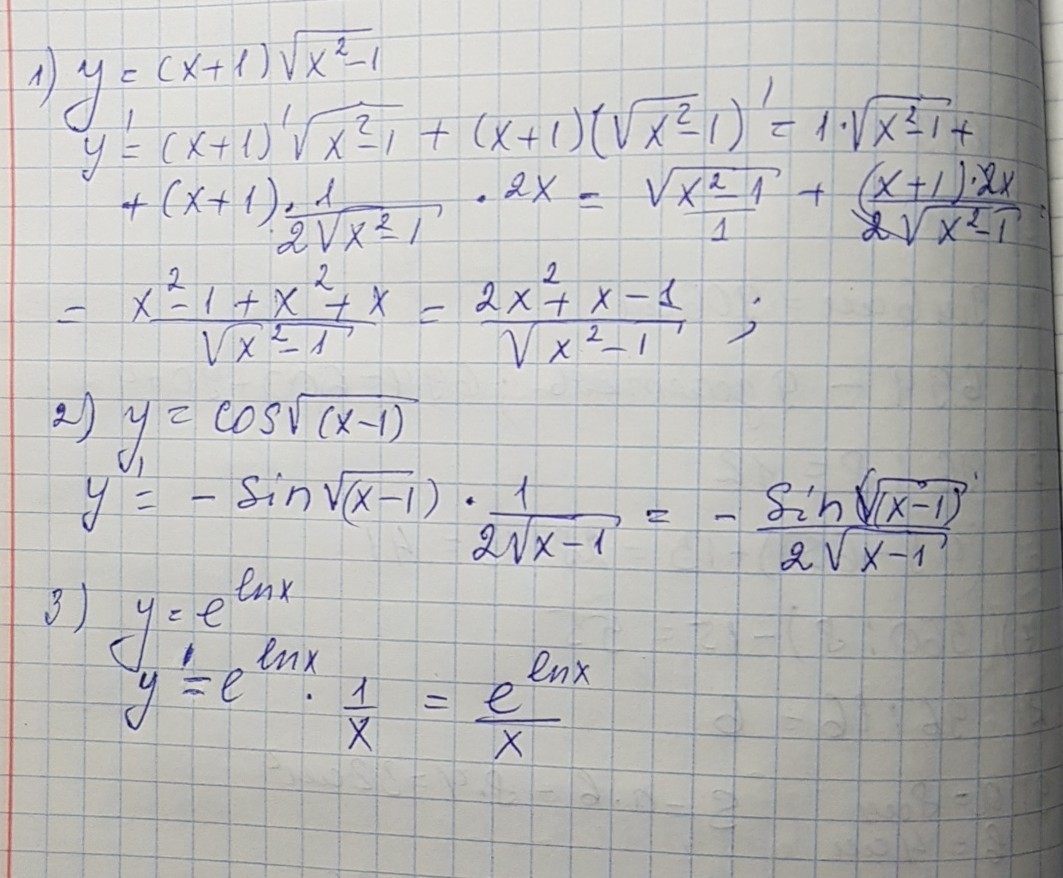 1) y = (x+1)√(x²-1)
y' = (x+1)'√(x²-1) + (x+1)(√(x²-1))' = 1·√(x²-1) +
+ (x+1)·1/(2√(x²-1)) · 2x = √(x²-1)/1 + (x+1)·2x/(2√(x²-1)) =
= (x²-1+x²+x)/√(x²-1) = (2x²+x-1)/√(x²-1) ;
2) y = cos√(x-1)
y' = - sin√(x-1) · 1/(2√(x-1)) = - sin(√(x-1))/(2√(x-1))
3) y = e^(lnx)
y' = e^(lnx) · 1/x = e^(lnx)/x